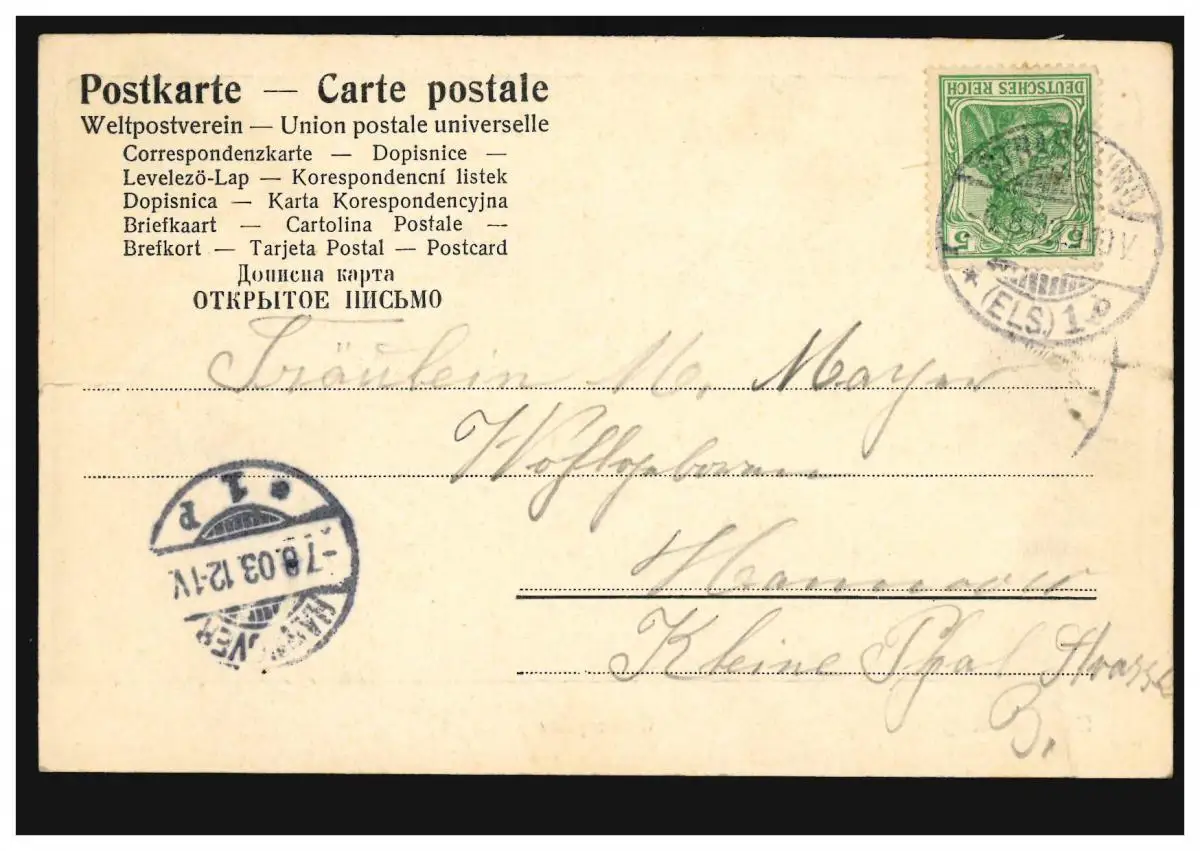 Postkarte — Carte postale
Weltpostverein — Union postale universelle
Correspondenzkarte — Dopisnice —
Levelező-Lap — Korespondencní listek
Dopisnica — Karta Korespondencyjna
Briefkaart — Cartolina Postale —
Brefkort — Tarjeta Postal — Postcard
Дописна карта
ОТКРЫТОЕ ПИСЬМО
DEUTSCHES REICH
5 5
(ELS) 1.
Fräulein M. Mayer
Wohlgeboren
Hannover
Kleine Pfal Strasse
3.
HANNOVER
-7.8.03. 12-1V.
1